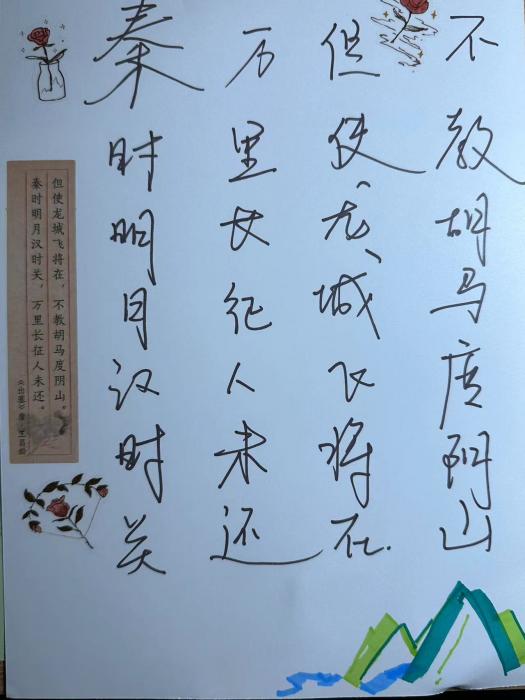 秦时明月汉时关
万里长征人未还
但使龙城飞将在
不教胡马度阴山
秦时明月汉时关，万里长征人未还。
但使龙城飞将在，不教胡马度阴山。
《出塞》唐·王昌龄